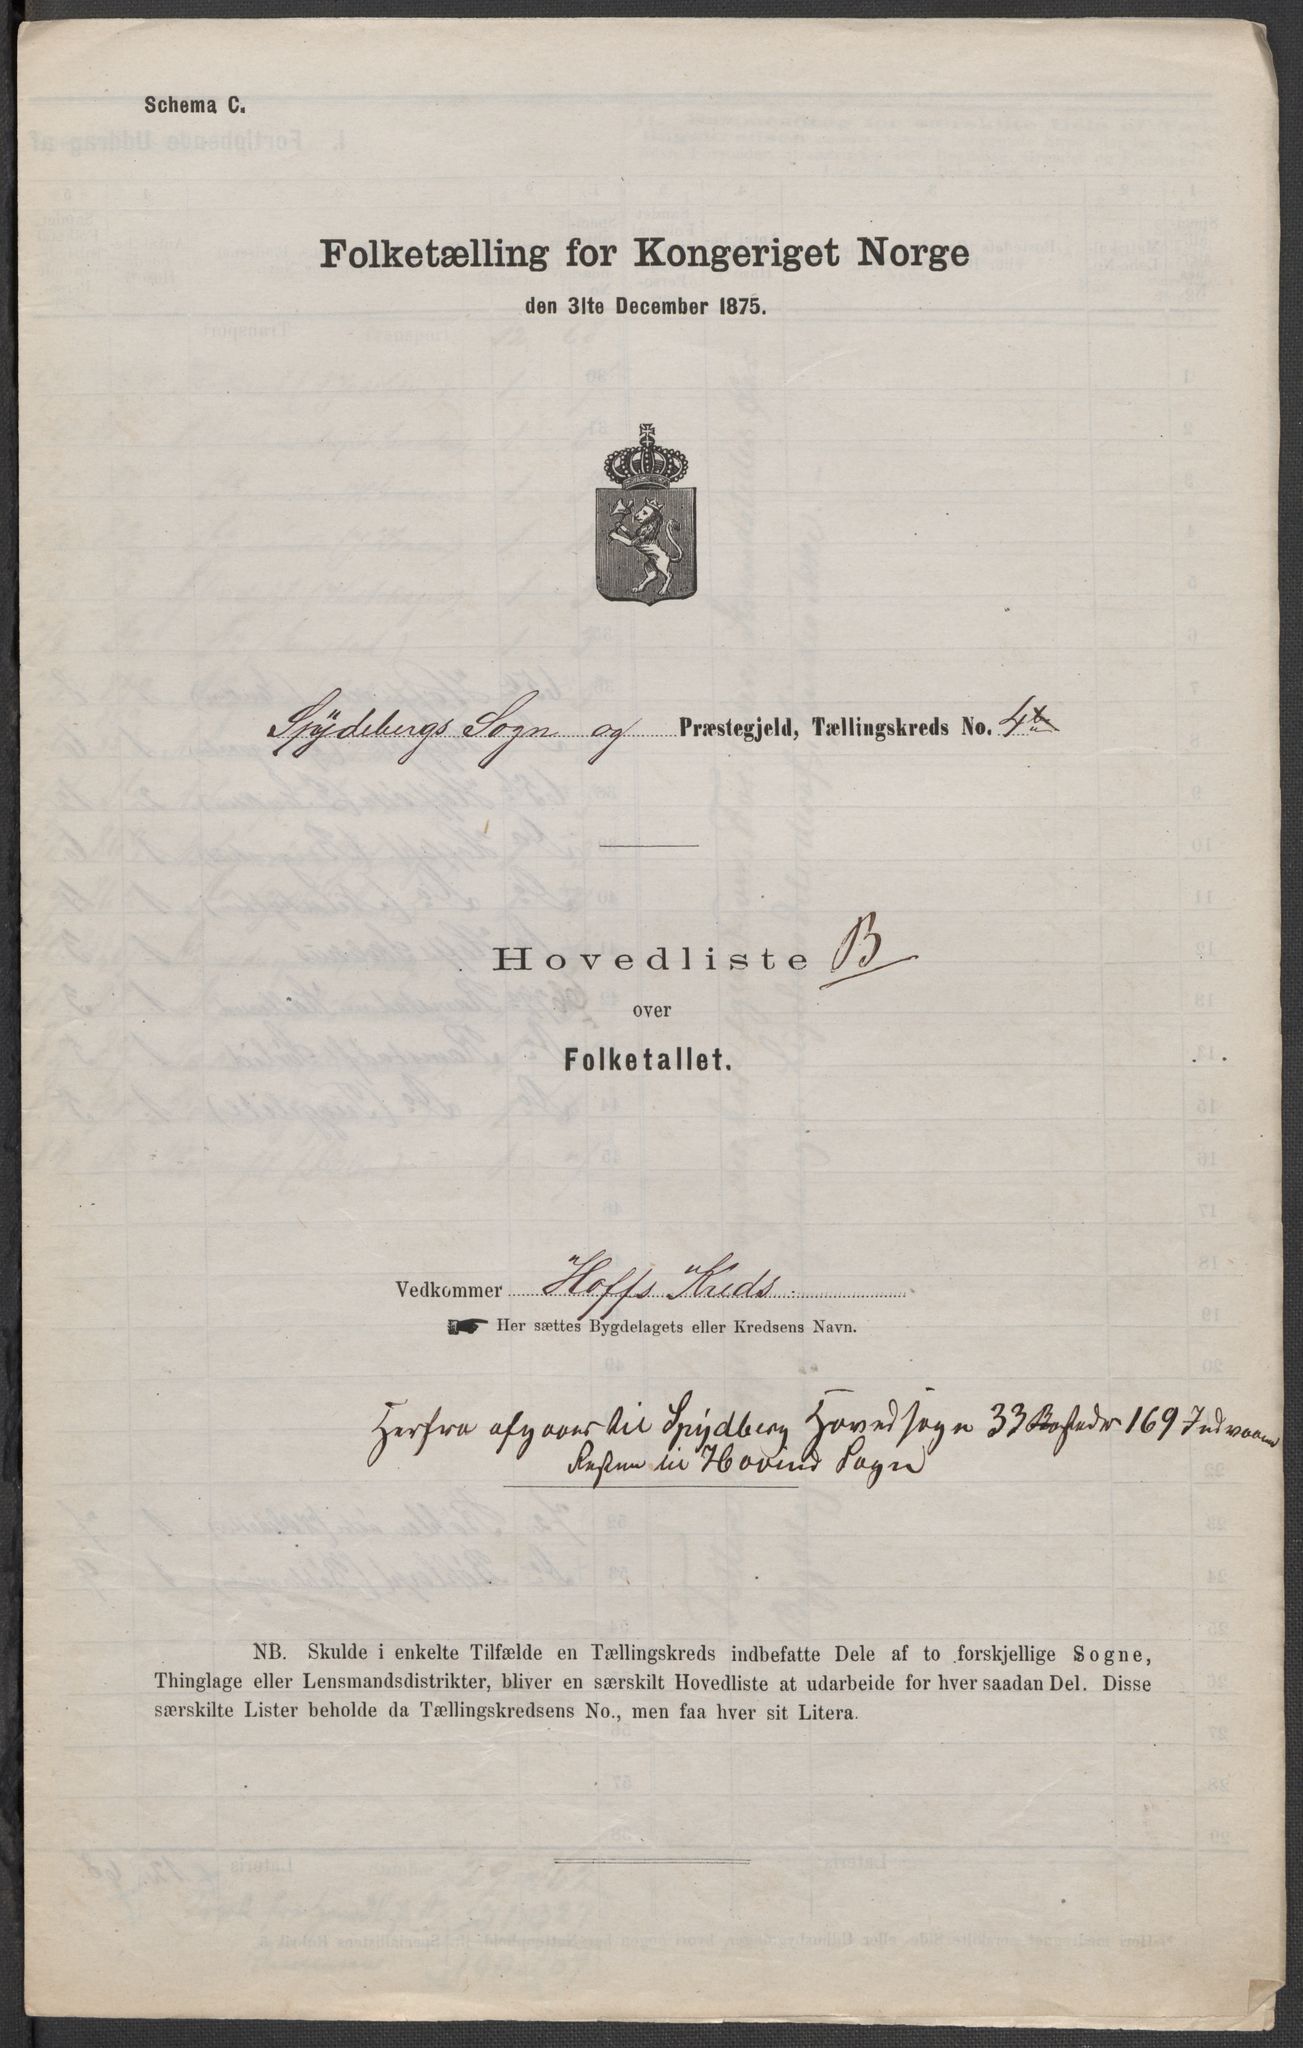 Schema C.
Folketælling for Kongeriget Norge
den 31te December 1875.
Spydebergs Sogn og Præstegjeld, Tællingskreds No. 4te
Hovedliste B
over
Folketallet.
Vedkommer Hoffs Kreds
Her sættes Bygdelagets eller Kredsens Navn.
Herfra afgaaer til Spydberg Hovedsogn 33 Bosteder 169 Indvaanere
Resten til Hovind Sogn
NB. Skulde i enkelte Tilfælde en Tællingskreds indbefatte Dele af to forskjellige Sogne,
Thinglage eller Lensmandsdistrikter, bliver en særskilt Hovedliste at udarbeide for hver saadan Del. Disse
særskilte Lister beholde da Tællingskredsens No., men faa hver sit Litera.